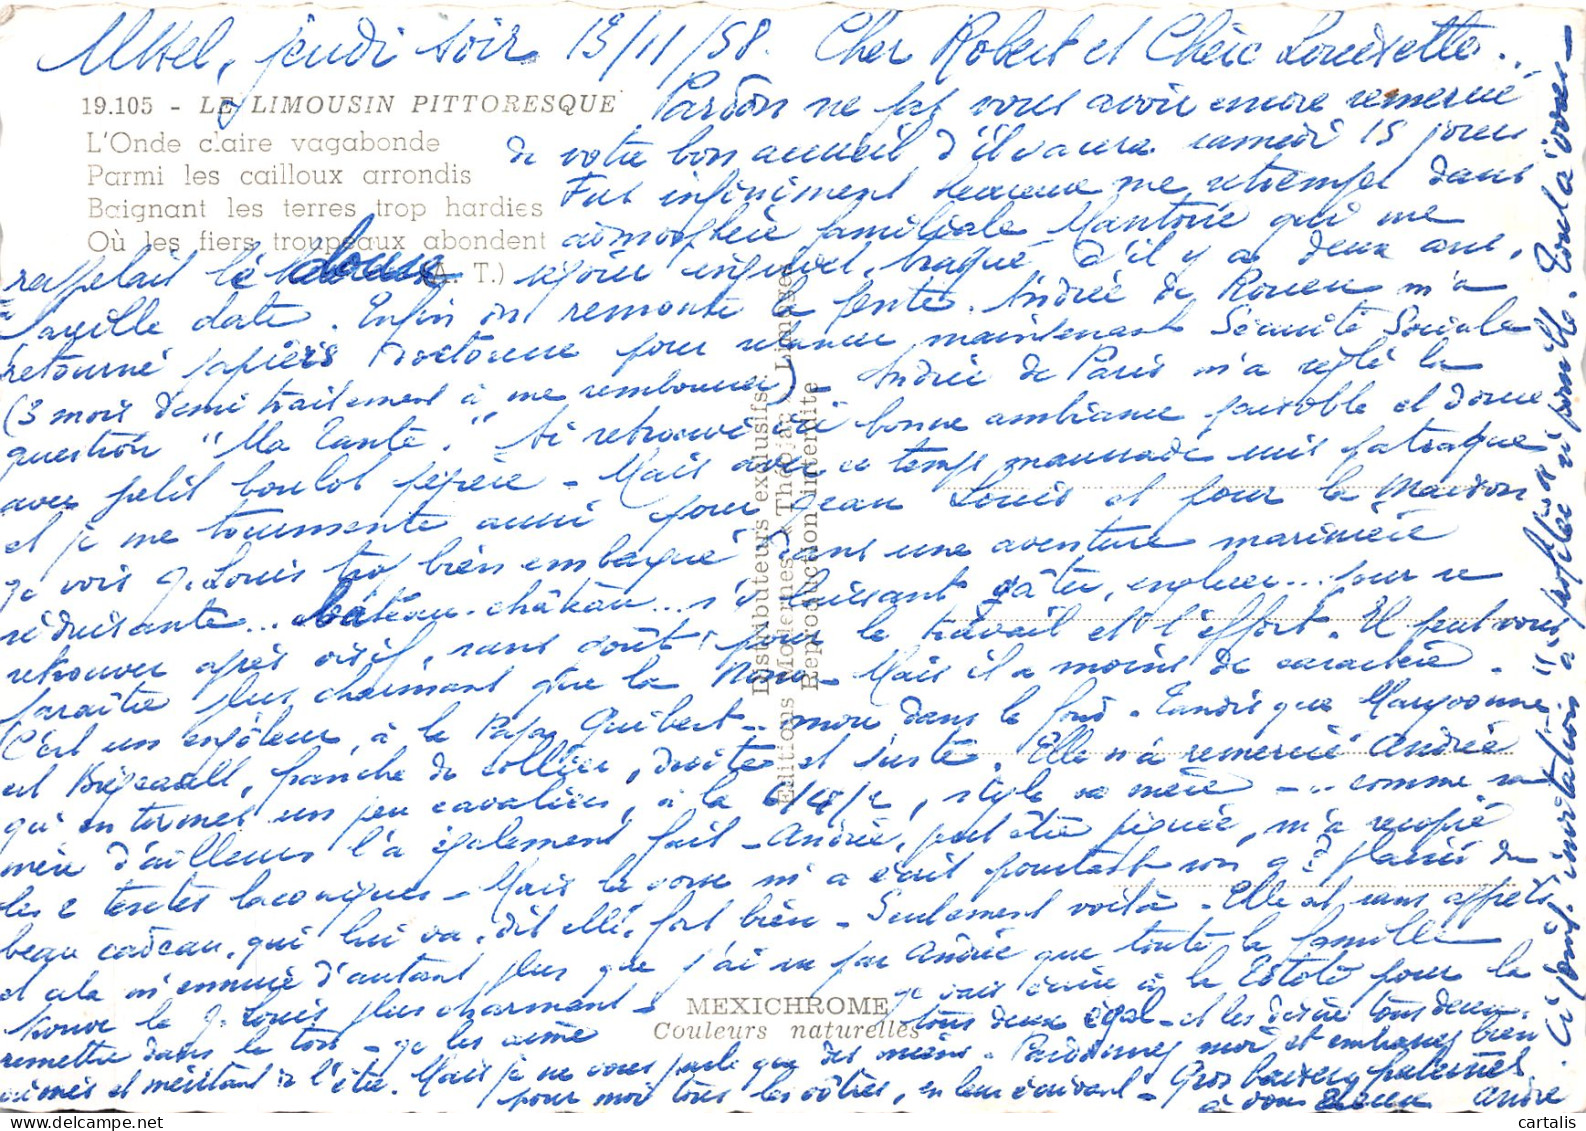 Ussel, jeudi soir 13/11/58. Cher Robert et Chère Louisette..,
19.105 - LE LIMOUSIN PITTORESQUE
L'Onde claire vagabonde
Parmi les cailloux arrondis
Baignant les terres trop hardies
Où les fiers troupeaux abondent
(A. T.)
Pardon ne pas vous avoir encore remercié
de votre bon accueil d'il y aura samedi 15 jours
Fus infiniment heureux me retremper dans
atmosphère familiale qui me
rappelait le doux séjour, d'il y a deux ans,
pareille date. Enfin on remonte la pente. Andrée de Rouen m'a
retourné papiers pour maintenant Sécurité Sociale
(3 mois demi traitement à me rembourser) - Andrée de Paris m'a réglé la
question "Ma Tante." Ai retrouvé ici bonne ambiance paisible et douce
avec petit boulot pépère - Mais avec ce temps maussade suis patraque
et je me tourmente aussi pour Jean Louis et pour la maison
Je vois J. Louis trop bien embarqué dans une aventure
séduisante... château... pour se
retrouver après oisif, sans goût pour le travail et l'effort. Il peut vous
paraître plus charmant que la Nana - Mais il a moins de caractère.
C'est un enjôleur, à la Papa Guibert.. mou dans le fond. Tandis que Maryvonne
est franche de collier, droite et juste. Elle m'a remercié Andrée
qui en termes un peu cavaliers, à la 6/4/2, style sa mère - .. comme sa
mère d'ailleurs l'a également fait - Andrée, peut être piquée, m'a recopié
les 2 textes laconiques - Mais la gosse m'a écrit pourtant son gd plaisir du
beau cadeau, qui lui va, dit elle, fort bien - Seulement voilà - Elle est sans apprêts
et cela m'ennuie d'autant plus que j'ai vu par Andrée que toute la famille
trouve le J. Louis plus charmant - je vais écrire à la Totote pour la
remettre dans le ton - Je les aime tous deux égal - et les désire tous deux
aimés et méritant de l'être. Mais je ne vous parle que des miens. Pardonnez moi et embrassez bien
pour moi tous les vôtres, en leur écrivant - Gros baisers paternels
à vous deux André
Distributeurs exclusifs:
Editions Modernes « Théojac » Limoges
Reproduction interdite
MEXICHROME
Couleurs naturelles